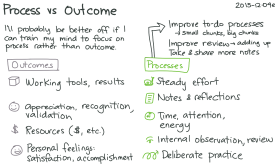 Process vs Outcome
2013-12-09c
I'll probably be better off if I
can train my mind to focus on
process rather than outcome.
Improve to-do processes
→ small chunks, big chunks
Improve review → adding up
Take & share more notes
Outcomes
Working tools, results
Appreciation, recognition,
validation
$ Resources ($, etc.)
Personal feelings:
satisfaction, accomplishment
Processes
Steady effort
Notes & reflections
Time, attention,
energy
Internal observation, review
Deliberate practice